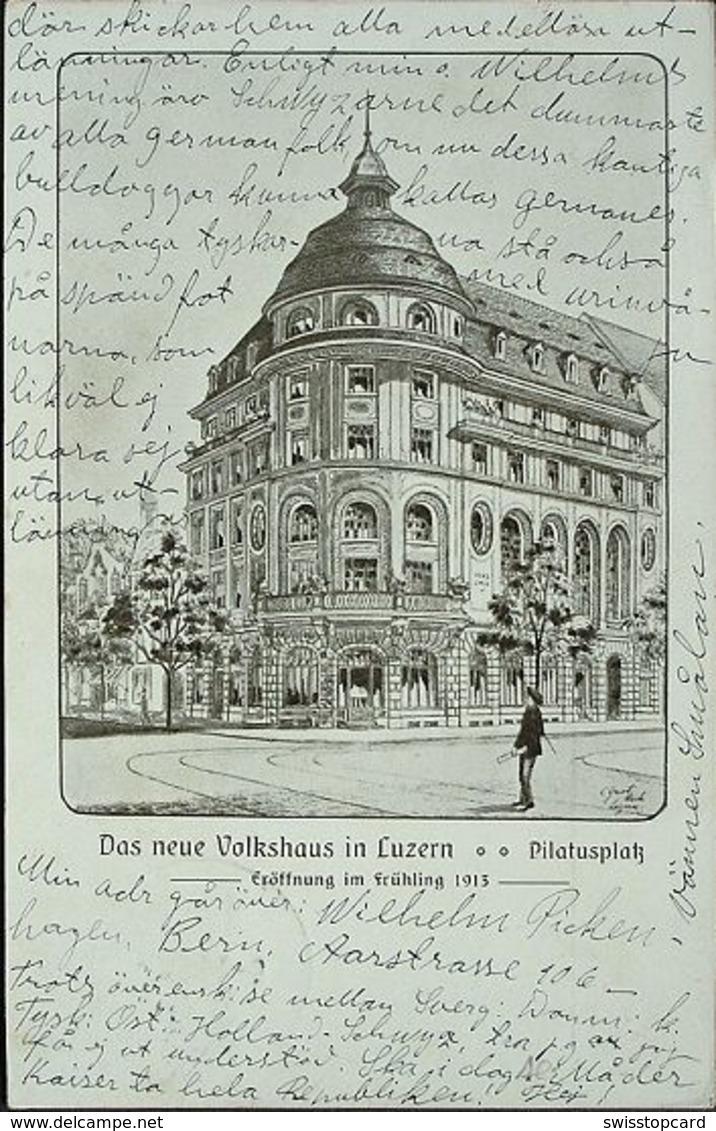 där skickar hem alla medellösa ut-
länningar. Enligt min v. Wilhelms
mening äro Schwyzarne det dummaste
av alla german folk, om nu dessa kantiga
bulldoggar kunna kallas germaner.
De många tyskar-
na stå också
på spänd fot
med urinvå-
narna, som
likväl ej
klara sej
utan ut-
länningar
Das neue Volkshaus in Luzern Pilatusplatz
Eröffnung im Frühling 1913
Min adr går över: Wilhelm Picken-
hagen, Bern, Aarstrasse 106 –
Trots överensk:se mellan Sverg: Danm:
Tysk: Öst: Holland- Schwyz,
får ej ut understöd. Ska i dag
Kaiser ta hela Republiken! Hej!
Vännen Småland.
swisstopcard